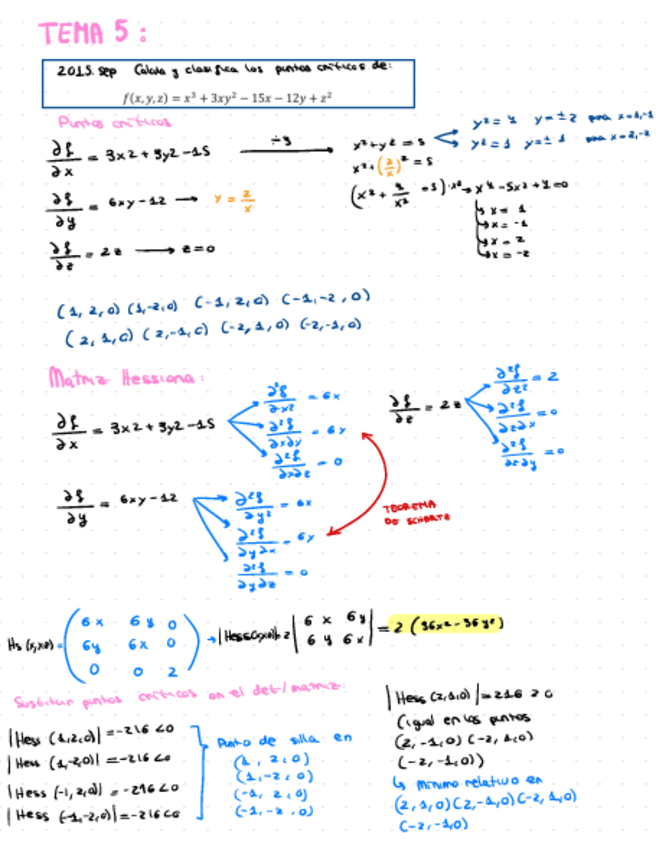 TEMA 5 :
2015. sep Calcula y clasifica los puntos críticos de:
f(x, y, z) = x³ + 3xy² − 15x − 12y + z²
Puntos críticos
∂f/∂x = 3x2 + 3y2 -15 ÷3 x²+y² = 5 y² = 4 y = ±2 para x=1,-1
y² = 1 y = ± 1 para x=2,-2
x²+(2/x)² = 5
∂f/∂y = 6xy -12 → y = 2/x (x² + 4/x² = 5) → x⁴ -5x2 + 4 = 0
x = 1
x = -1
x = 2
x = -2
∂f/∂z = 2z → z=0
(1, 2, 0) (1,-2,0) (-1, 2, 0) (-1,-2, 0)
(2, 1, 0) (2,-1, 0) (-2, 1, 0) (-2,-1,0)
Matriz Hessiana:
∂f/∂x = 3x2 + 3y2 -15
∂²f/∂x² = 6x
∂²f/∂x∂y = 6y
∂²f/∂x∂z = 0
∂f/∂z = 2z
∂²f/∂z² = 2
∂²f/∂z∂x = 0
∂²f/∂z∂y = 0
∂f/∂y = 6xy -12
∂²f/∂y² = 6x
∂²f/∂y∂x = 6y
∂²f/∂y∂z = 0
TEOREMA
DE SCHARTZ
6x 6y 0
6y 6x 0
0 0 2
6x 6y
6y 6x
= 2 (36x² - 36y²)
Sustituir puntos críticos en el det/matriz:
|Hess (1,2,0)| = -216 <0
|Hess (1,-2,0)| = -216 <0
|Hess (-1, 2,0)| = -216 <0
|Hess (-1,-2,0)| = -216 <0
Punto de silla en
(1, 2, 0)
(1,-2, 0)
(-1, 2, 0)
(-1,-2, 0)
|Hess (2,1,0)| = 216 > 0
(igual en los puntos
(2, -1,0) (-2, 1,0)
(-2, -1,0))
↳ mínimo relativo en
(2, 1,0) (2,-1,0) (-2, 1,0)
(-2,-1,0)